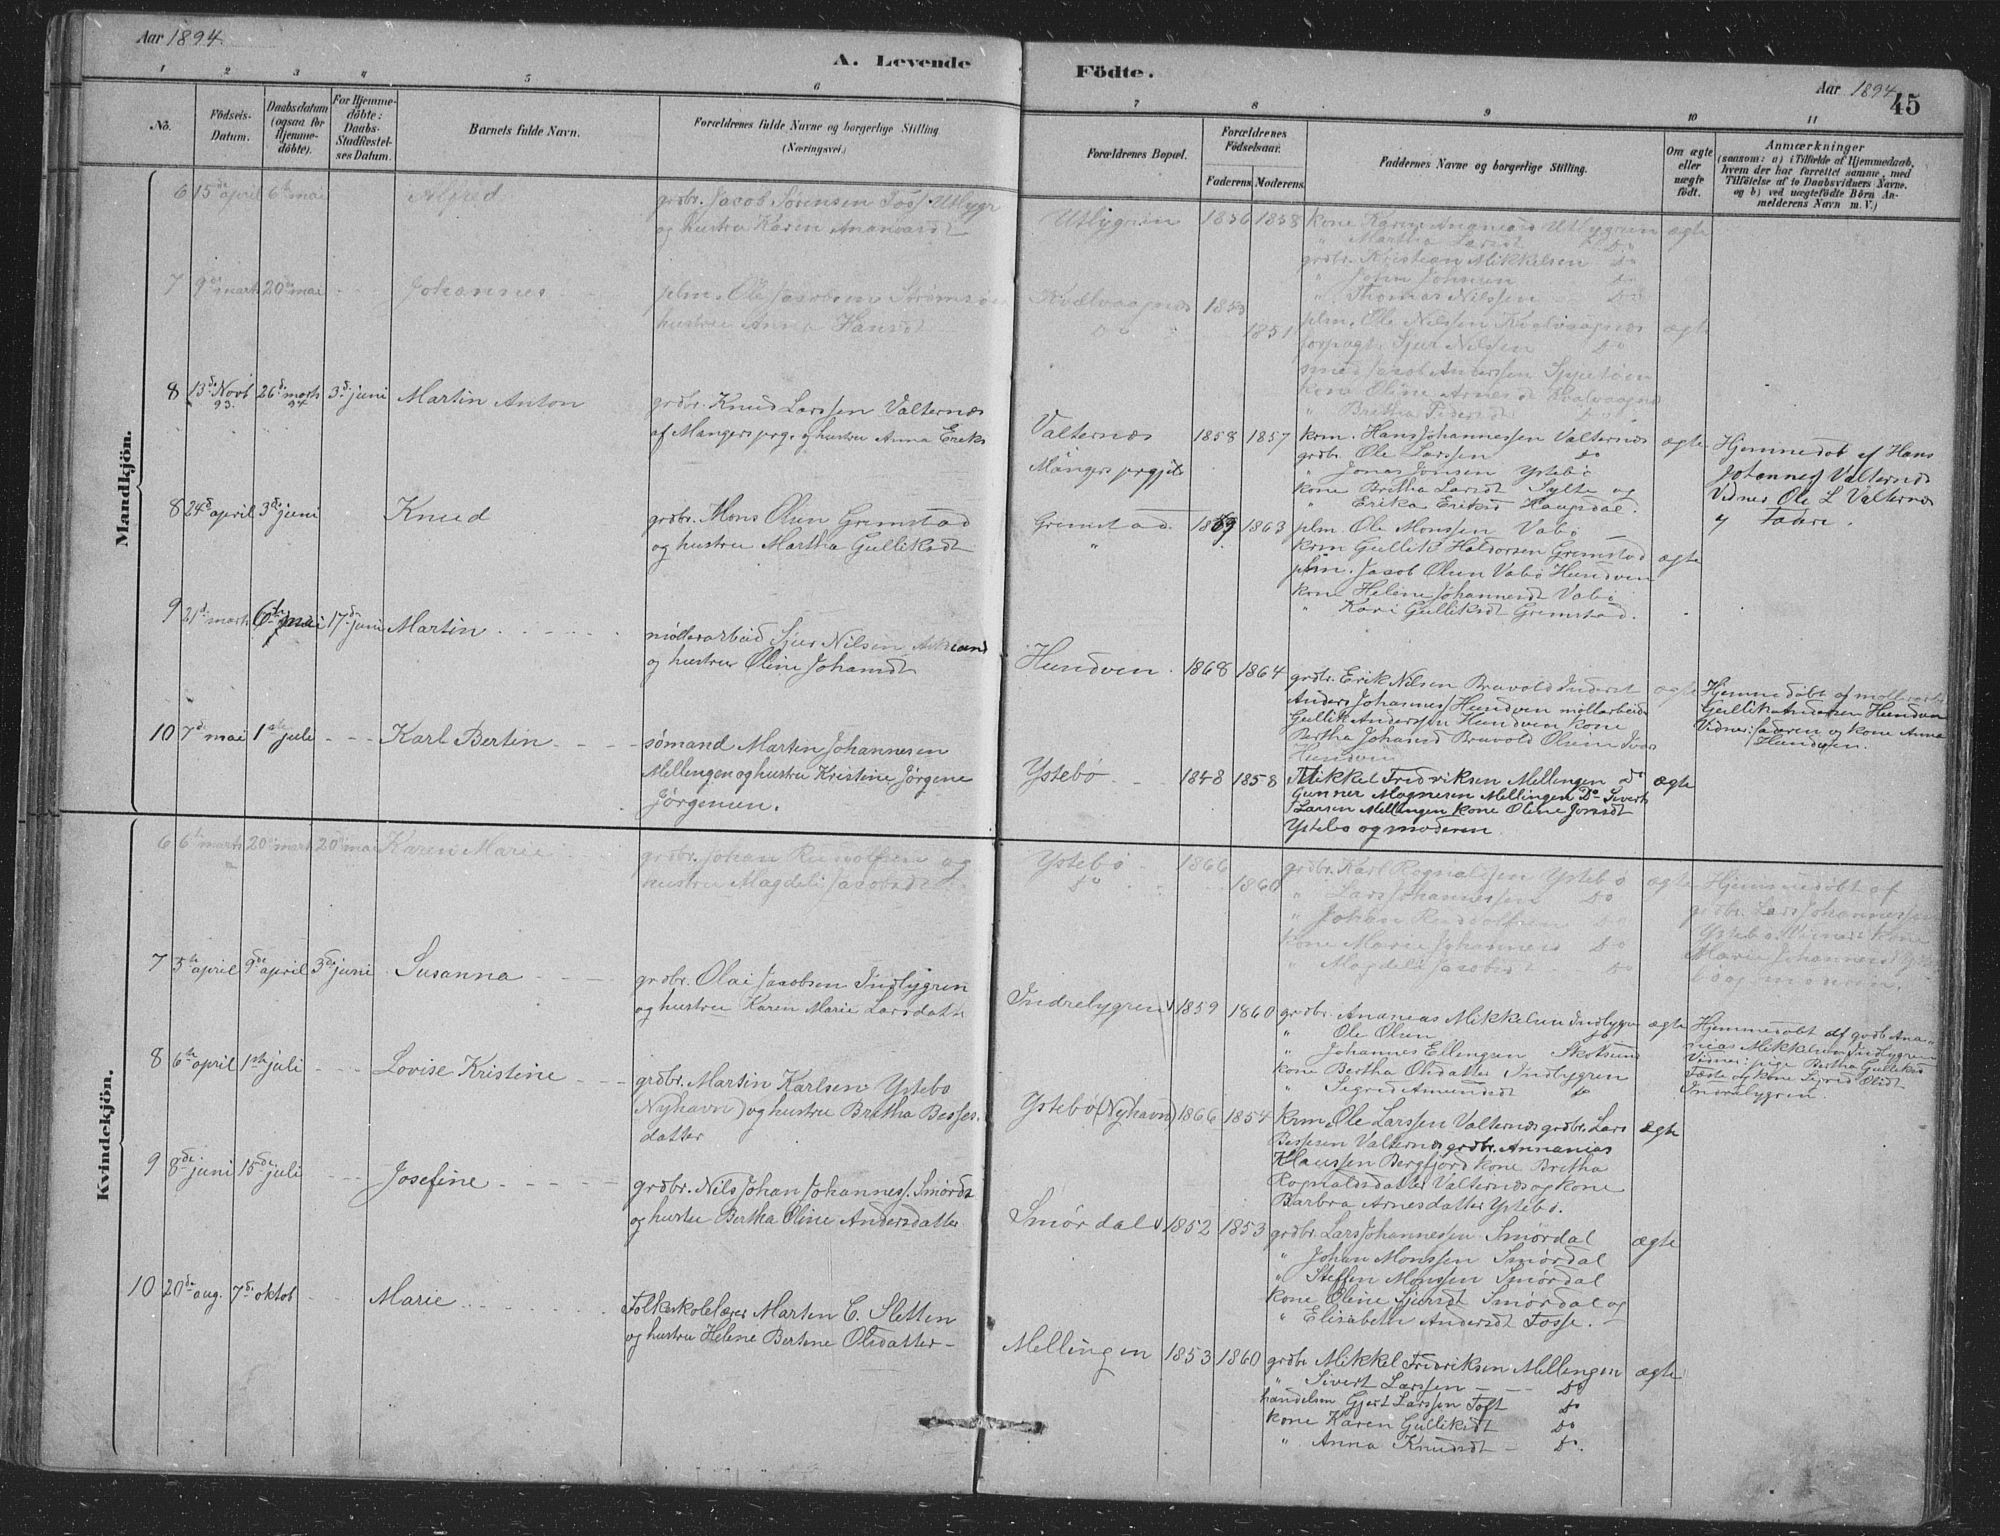 Aar 1894.
A. Levende Födte.
Aar 1894 45
1 2 3 4 5 6 7 8 9 10 11
No.
Födsels-Datum.
Daabsdatum (ogsaa for Hjemme-döbte).
For Hjemme-döbte: Daabs-Stadfæstel-ses Datum.
Barnets fulde Navn.
Forældrenes fulde Navne og borgerlige Stilling (Næringsvei.)
Forældrenes Bopæl.
Forældrenes Födselsaar.
Faderens. Moderens.
Faddernes Navne og borgerlige Stilling.
Om ægte eller uægte födt.
Anmærkninger
(saasom: a) i Tilfælde af Hjemmedaab,
hvem der har forrettet samme, med
Tilföielse af to Daabsvidners Navne.
og b) ved uægtefödte Börn An-
melderens Navn m. V.)
Mandkjön.
6 15de april 6te mai Alfred
grdbr. Jacob Sørensen Utlygr
og hustru Karen
Utlygren 1856 1858
kone Karen Utlygren ægte
" Martha Larsdt Do
grdbr. Kristian Mikkelsen Do
" John Johnsen Do
" Thomas Nilssen Do
7 9de marts 20de mai Johannes
plm. Ole Jacobsen
hustru Anna Hansdt
Kvalvaagnes 1853
Do 1851
plm. Ole Nilssen Kvalvaagnes ægte
forpagt. Sjur Nilssen Do
smed Jacob Anderssen
kone Oline Arnesd Kvalvaagnes
" Britha Do
8 13de Novb 93. 26de marts 94 3de juni Martin Anton
grdbr. Knud Larssen Valternæs
af Mangers prg. og hustru Anna Eriks
Valternæs 1858 1857
Mangers prgjeld
krm. Hans Johannessen Valternæs ægte
grdbr. Ole Larssen Do
" Jonas Jonsen Ystebø
kone Britha Larsdt Sylte og
" Erika Eriksd Haugsdal.
Hjemmedøb af Hans
Johannes Valternæs
Vidner Ole L Valternæs
og Fader.
8 24de april 3de juni Knud
grdbr. Mons Olsen Gremstad
og hustru Martha Gulliksdt
Gremstad. 1869 1863
"
plm. Ole Monssen Vabø
krm Gullik Haldorsen Gremstad ægte
plm. Jacob Olsen Vabø Hundven
kone Helene Johannesdt Vabø
" Kari Gulliksdt Gremstad.
9 21de marts 6te mai 17de juni Martin
møllerarbeid Sjur Nilsen
og hustru Oline Johansdt
Hundven. 1868 1864
grdbr. Erik Nilsen Bruvold Inderst ægte
Anders Johannes Hundven møllarbeide
Gullik Anderssen Hundven kone
Bertha Johansd Bruvold Olsine Ivers
Hundven
Hjemmedøbt af mollerarb
Gullik Andersen Hundven
Vidner: faderen og kone Anna
Hundven.
10 7de mai 1ste juli Karl Bertin
sømand Martin Johannesen
Mellengen og hustru Kristine Jørgene
Jørgensen.
Ystebø 1848 1858
Mikkel Fredriksen Mellengen Do ægte
Gunner Magnesen Mellingen Do Sivert
Larsen Mellengen kone Oline Jonsdt
Ystebø og moderen
Kvindekjön.
6 6te marts 20de marts 20de mai Karen Marie
grdbr. Johan Rudolfsen og
hustru Magdeli Jacobsdt
Ystebø 1866
Do 1860
grdbr. Karl Rognaldsen Ystebø ægte
" Lars Johannessen Do
" Johan Rudolfsen Do
kone Marie Johannesd Do
" Magdeli Jacobsdt Do
Hjemmedøbt af
grdbr. Lars Johannessen
Ystebø. Vidner: kone
Marie Johannesd Yste
bø og moderen.
7 5te april 9de april 3de juni Susanna
grdbr. Olai Jacobsen Indlygren
og hustru Karen Marie Larsdatt
Indrelygren 1859 1860
grdbr. Ananias Mikkelsen Indlygren ægte
" Ole Olsen Do
" Johannes Ellengsen Skotsund
kone Bertha Olsdatter Indlygren
" Segred Amundsdt Do
Hjemmedøbt af grdb. Ana-
nias Mikkelsen Indlygren
Vidner: pige Bertha Gulliksd
Fæste og kone Sigred Olsdt
Indrelygren.
8 6te april 1ste juli Lovise Kristine
grdbr. Martin Karlsen Ystebø
(Nyhavn) og hustru Britha Besses-
datter
Ystebø (Nyhavn) 1866 1854
krm. Ole Larssen Valternæs grdbr. Lars ægte
Bessesen Valternæs grdbr. Annanias
Klaussen Bergfjord kone Britha
Rognaldsdatter Valternæs og kone
Barbra Arnesdatter Ystebø.
9 8de juni 15de juli Josefine
grdbr. Nils Johan Johanness. Smørdal
og hustru Bertha Oline Andersdatter
Smørdal 1852 1853
grdbr. Lars Johannessen Smørdal ægte
" Johan Monssen Smørdal
" Steffen Monssen Smørdal
kone Oline Sjursdt Smørdal og
" Elisabeth Andersdt Fosse.
10 20de aug. 7de oktob Marie
Folkeskolelærer Martin C. Sletten
og hustru Helene Bertine Olsdatter
Mellingen 1853 1860
grdbr Mikkel Fredriksen Mellengen ægte
" Sivert Larssen Do
handelsm Gjert Larssen Toft Do
kone Karen Gulliksdt Do
" Anna Knudsdt Do